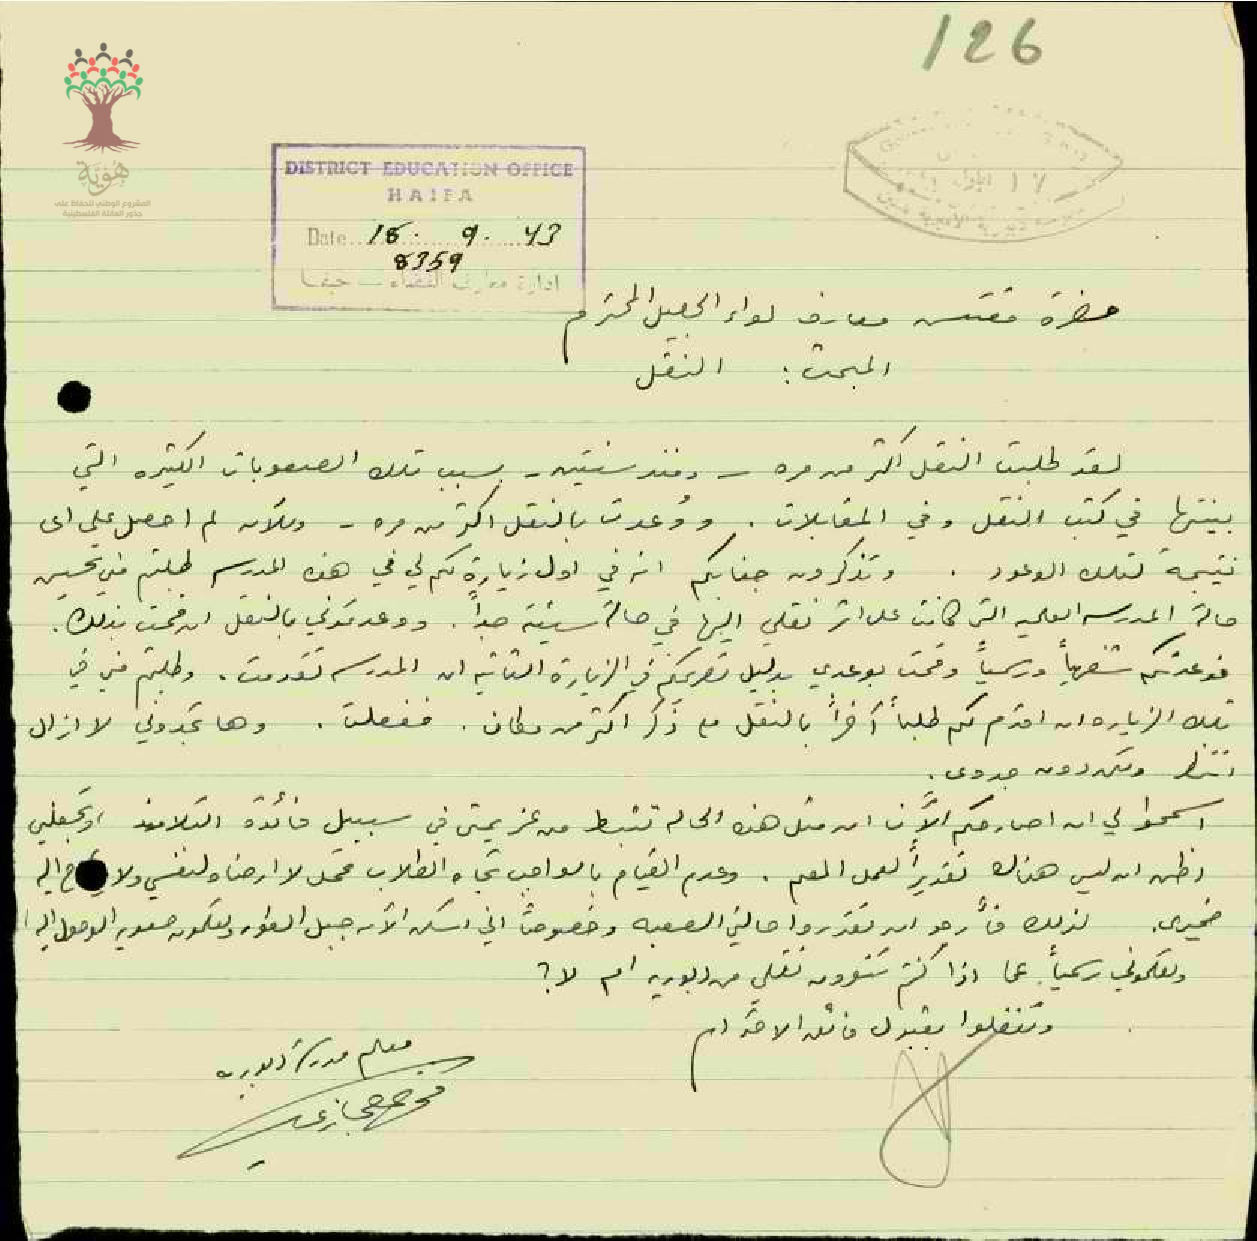 126
هوية
المشروع الوطني للحفاظ على
جذور العائلة الفلسطينية
DISTRICT EDUCATION OFFICE
HAIFA
Date 18. 9. 43
8359
ادارة معارف القضاء – حيفا
حضرة مفتش معارف لواء الجليل المحترم
المبحث : النقل
لقد طلبت النقل اكثر من مره – ومنذ سنتين – بسبب تلك الصعوبات الكثيره التي
بينتها في كتب النقل وفي المقابلات . ووُعدت بالنقل اكثر من مره – ولكن لم احصل على اى
نتيجة لتلك الوعود . وتذكرون جنابكم انه في اول زيارة لكم لي في هذه المدرسه طلبتم مني تحسين
حالة المدرسه العلميه التي كانت على اثر نقلي اليها في حالة سيئة جداً . ووعدتموني بالنقل ان قمت بذلك .
فوعدتكم شفهياً ورسمياً وقمت بوعدي بدليل تصريحكم في الزيارة الثانيه ان المدرسه تقدمت . وطلبتم مني في
تلك الزياره ان اقدم لكم طلباً آخراً بالنقل مع ذكر اكثر من مكان . ففعلت . وها تجدوني لا ازال
انتظر ولكن دون جدوى .
اسمحوا لي ان اصارحكم الآن ان مثل هذه الحاله تثبط من عزيمتي في سبيل فائدة التلاميذ وتجعلني
اظن ان ليس هناك تقديراً لعمل المعلم . وعدم القيام بالواجب تجاه الطلاب عمل لا ارضاه لنفسي ولا اليه
ضميرى . لذلك فأرجو ان تقدروا حالتي الصعبه وخصوصاً اني اسكن الآن جبل الطور ولكون صعوبه الوصول اليه
وتعلموني رسمياً عما اذا كنتم تنوون نقلي من دبوريه ام لا ؟
وتفضلوا بقبول فائق الاحترام
معلم مدرسة دبوريه
حجازي